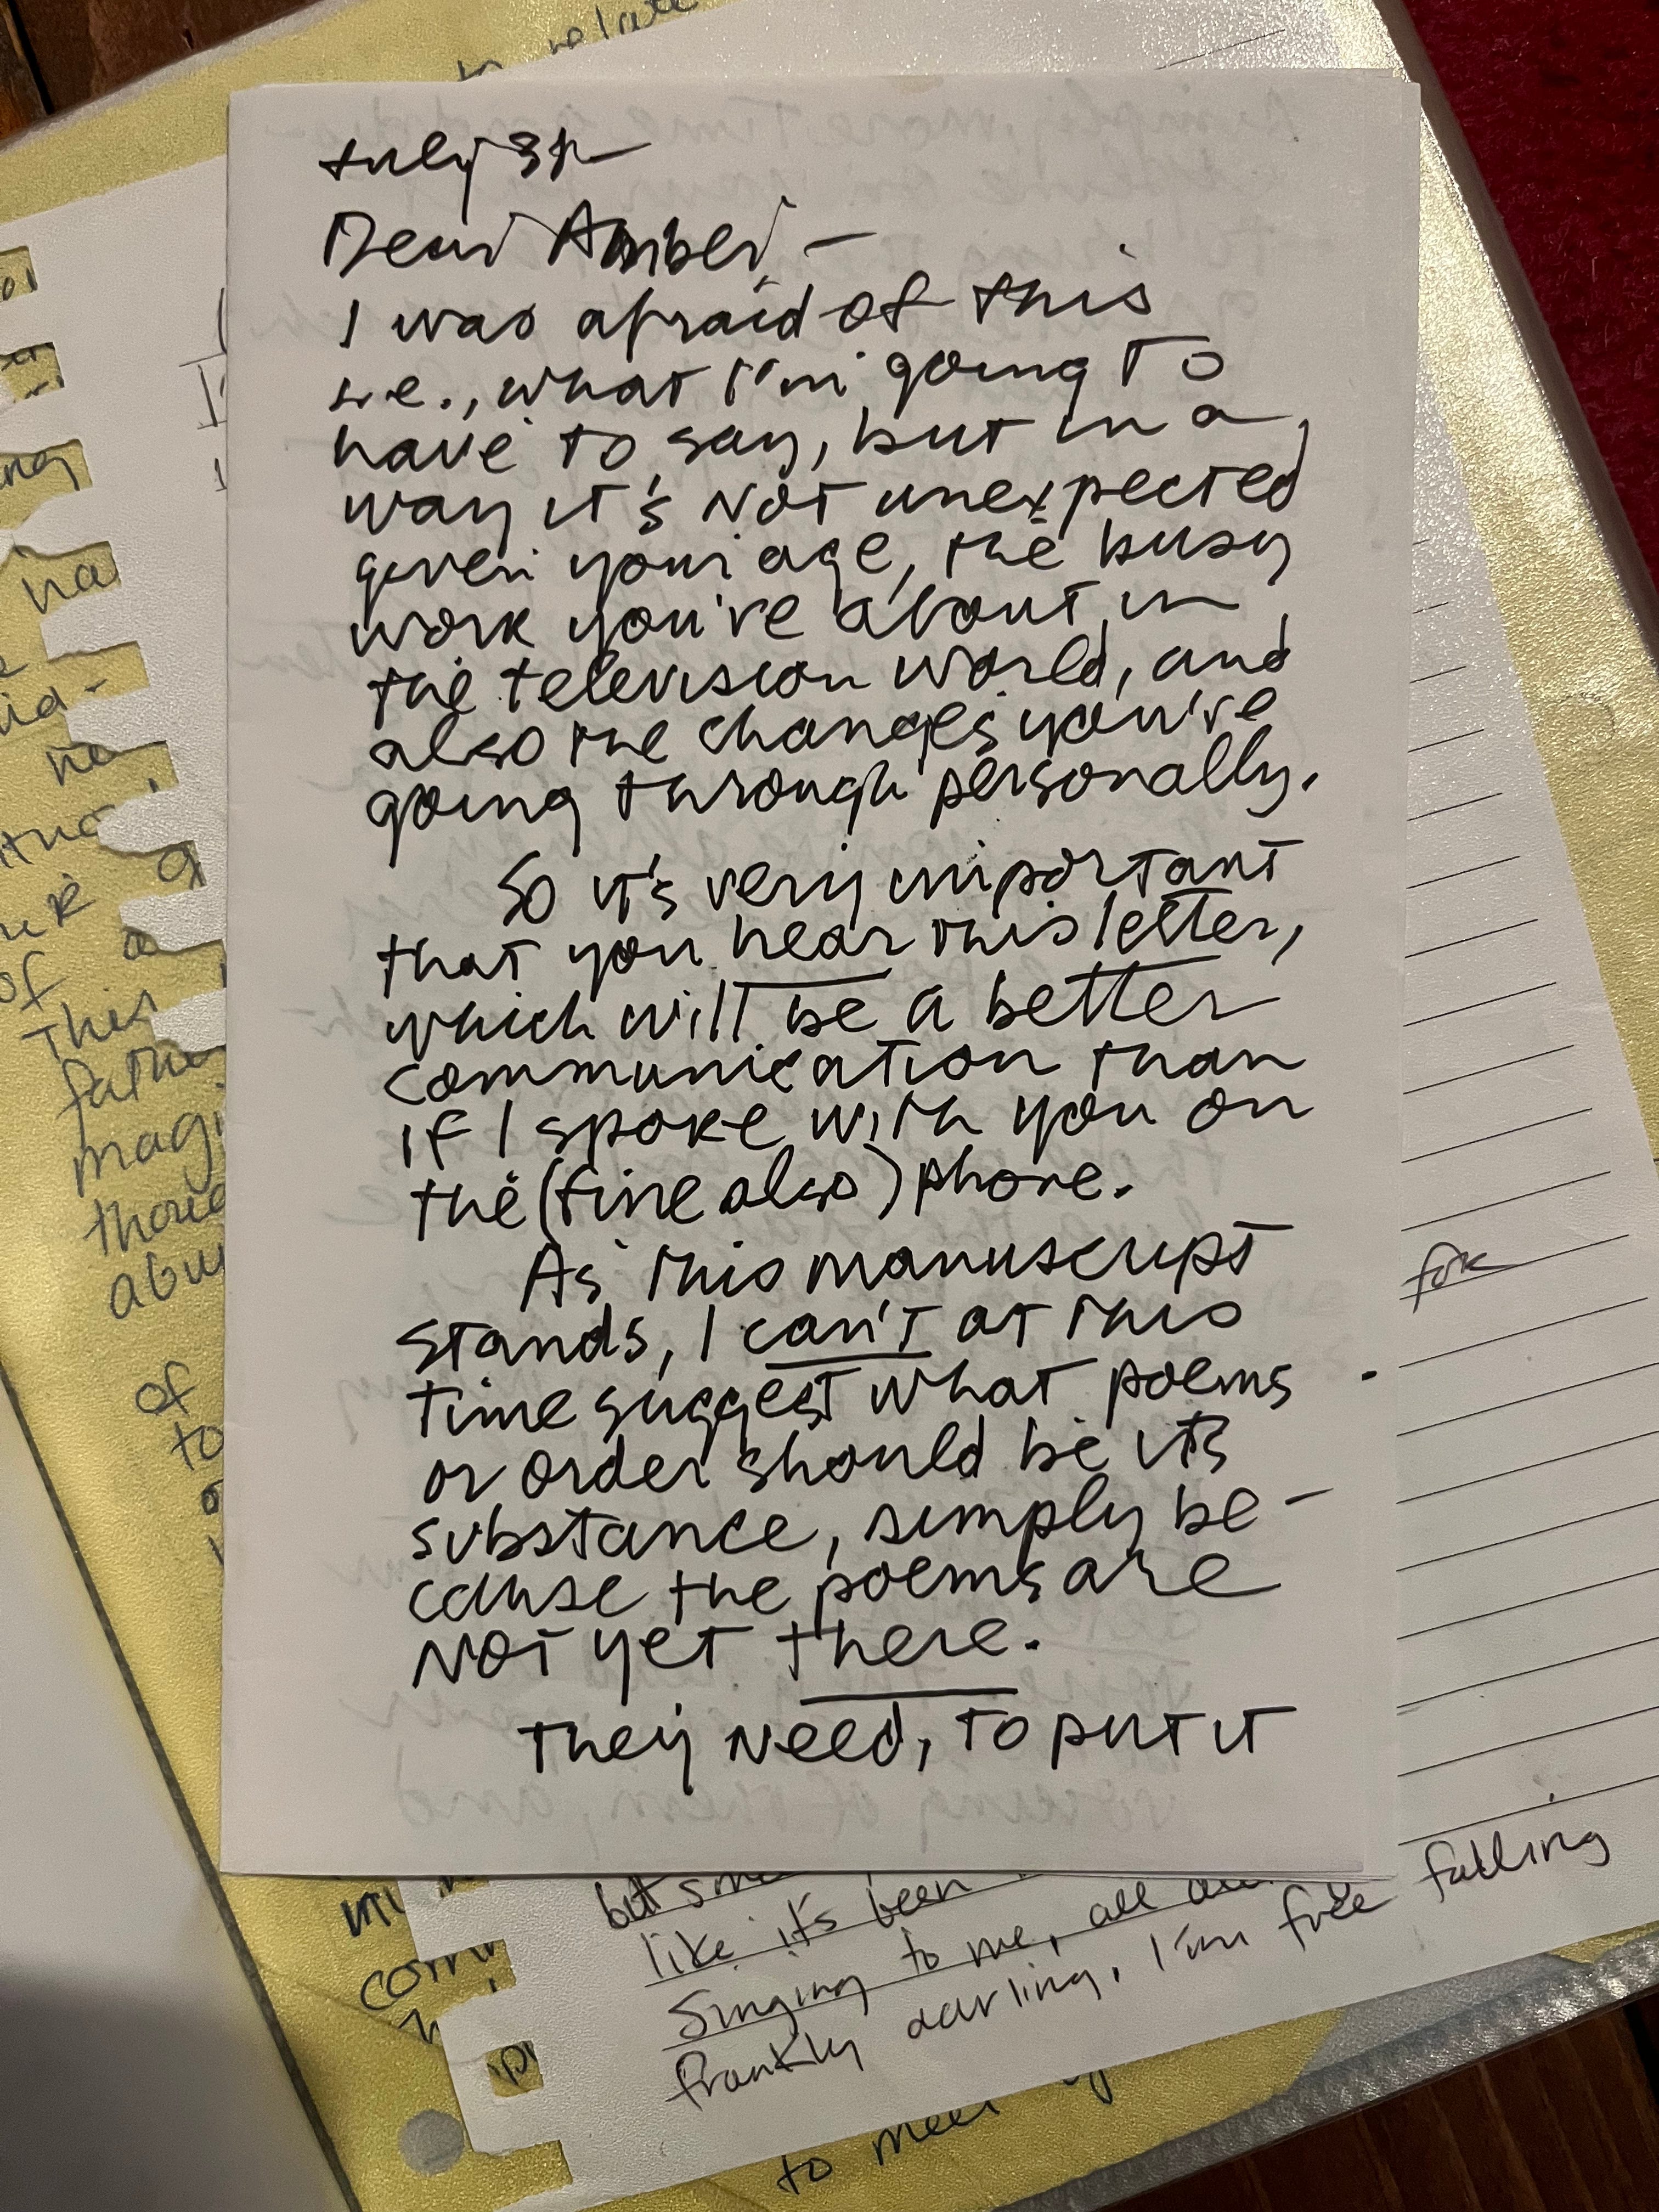 July
Dear Amber,—
I was afraid of this
i.e., what I'm going to
have to say, but in a
way it's not unexpected
given your age, the busy
work you're about in
the television world, and
also the changes you're
going through personally.
So it's very important
that you hear this letter,
which will be a better
communication than
if I spoke with you on
the (fine also) phone.
As this manuscript
stands, I can't at this
time suggest what poems
or order should be its
substance, simply be-
cause the poems are
not yet there.
They need, to put it
for
but
like it's been
singing to me, all
frankly darling, I'm free falling
to meet
to relate
na
of a
This
magi
of
to